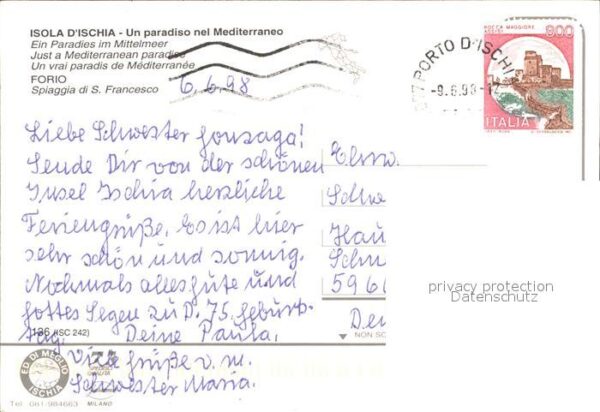 ISOLA D'ISCHIA - Un paradiso nel Mediterraneo
Ein Paradies im Mittelmeer
Just a Mediterranean paradise
Un vrai paradis de Méditerranée
FORIO
Spiaggia di S. Francesco
6.6.98
PORTO D'ISCHIA
-9.6.98-
ROCCA MAGGIORE
ASSISI
800
ITALIA
Liebe Schwester Gonzaga!
Sende Dir von der schönen
Insel Ischia herzliche
Feriengrüße. Es ist hier
sehr schön und sonnig.
Nochmals alles gute und
gottes Segen zu D. 75. Geburts-
tag. Deine Paula.
Viele Grüße v. m.
Schwester Maria.
Ehrw.
Schwe
Hau
Schm
5966
Deu
privacy protection
Datenschutz
136 (ISC 242)
NON SC
ED DI MEGLIO
ISCHIA
Tel 081-984663
MILANO